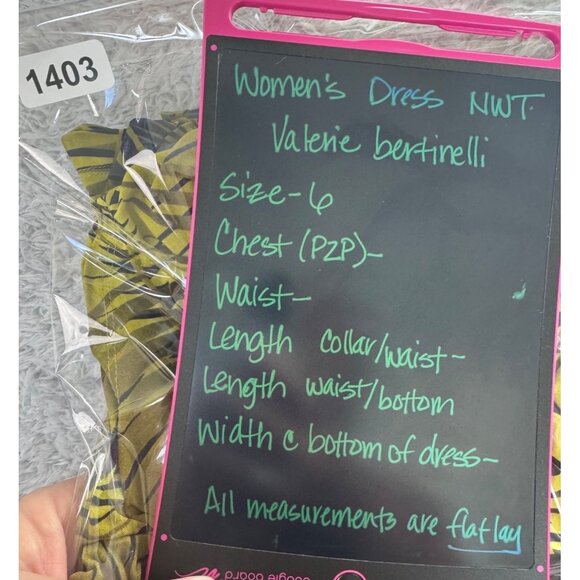 1403
Women's Dress NWT
Valerie bertinelli
Size-6
Chest (P2P)-
Waist-
Length collar/waist-
Length waist/bottom
Width @ bottom of dress-
All measurements are flat lay
oogie board